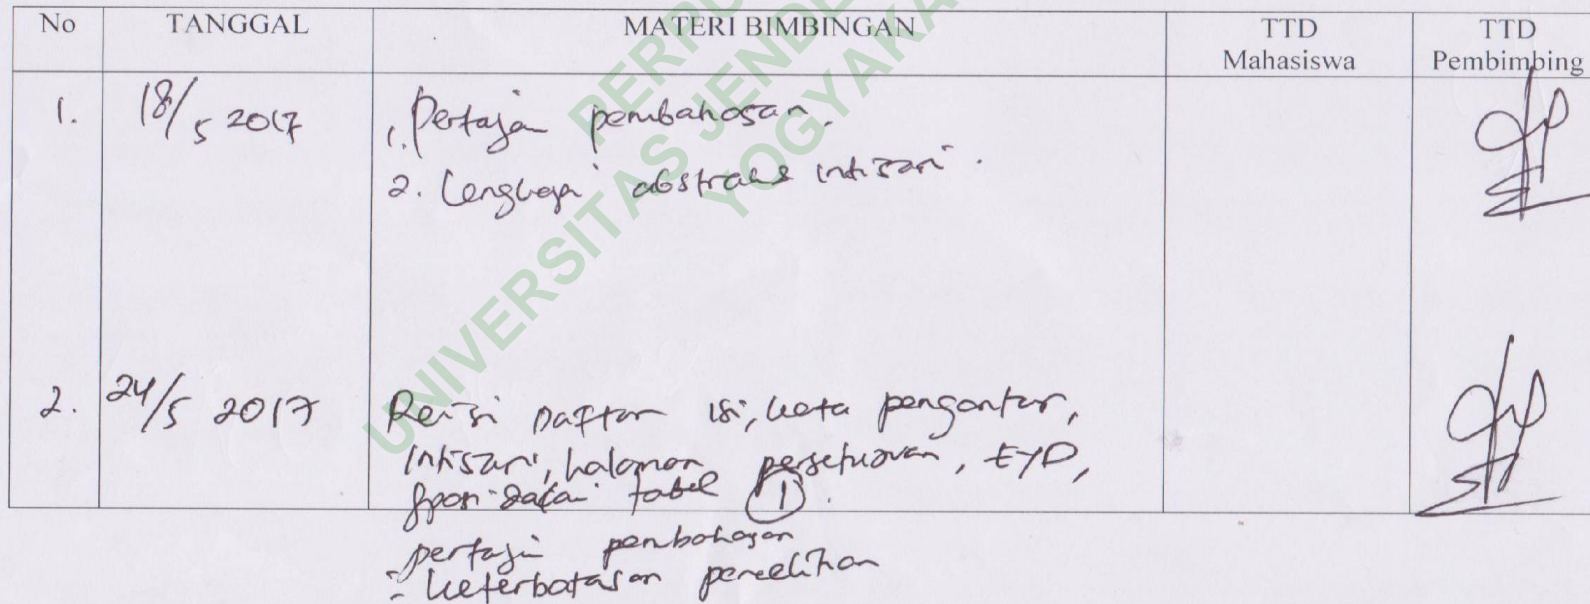 No TANGGAL MATERI BIMBINGAN TTD Mahasiswa TTD Pembimbing
1. 18/5 2017 1. Pertajam pembahasan.
2. Lengkapi abstraks intisari.
2. 24/5 2017 Revisi Daftar isi, kata pengantar,
Intisari, halaman persetujuan, EYD,
spasi dalam tabel 1.
pertajam pembahasan
- keterbatasan penelitian
UNIVERSITAS JENDE
YOGYAKA